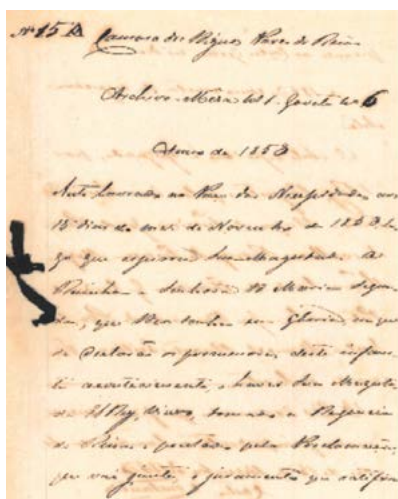 Nº 15 A Camara dos Dignos Pares do Reino
Archivo - Meza Nº 1 - Gaveta Nº 6
Anno de 1853
Auto Lavrado no Paço das Necessidades aos
15 dias do mez de Novembro de 1853, lo
go que expirou Sua Magestade A
Rainha a Senhora D. Maria Segun
da, que Deos tenha em Gloria, em que
se os pormenores deste infaus
to acontecimento, haver Sua Magesta
de El Rey, Viuvo, tomado a Regencia
do Reino, pela Proclamação
que vae junta, e juramento que ratificou